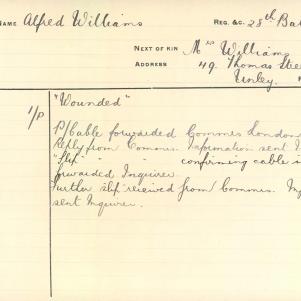 NAME Alfred Williams REG. &C. 28th Bat
NEXT OF KIN Mrs Williams
ADDRESS 49 Thomas Stre
Unley.
1/P "Wounded"
P/Cable forwarded Commrs London
Reply from Commrs. Information sent
"Slip" " " confirming cable i
forwarded Inquirer.
Further slip received from Commrs.
sent Inquirer.